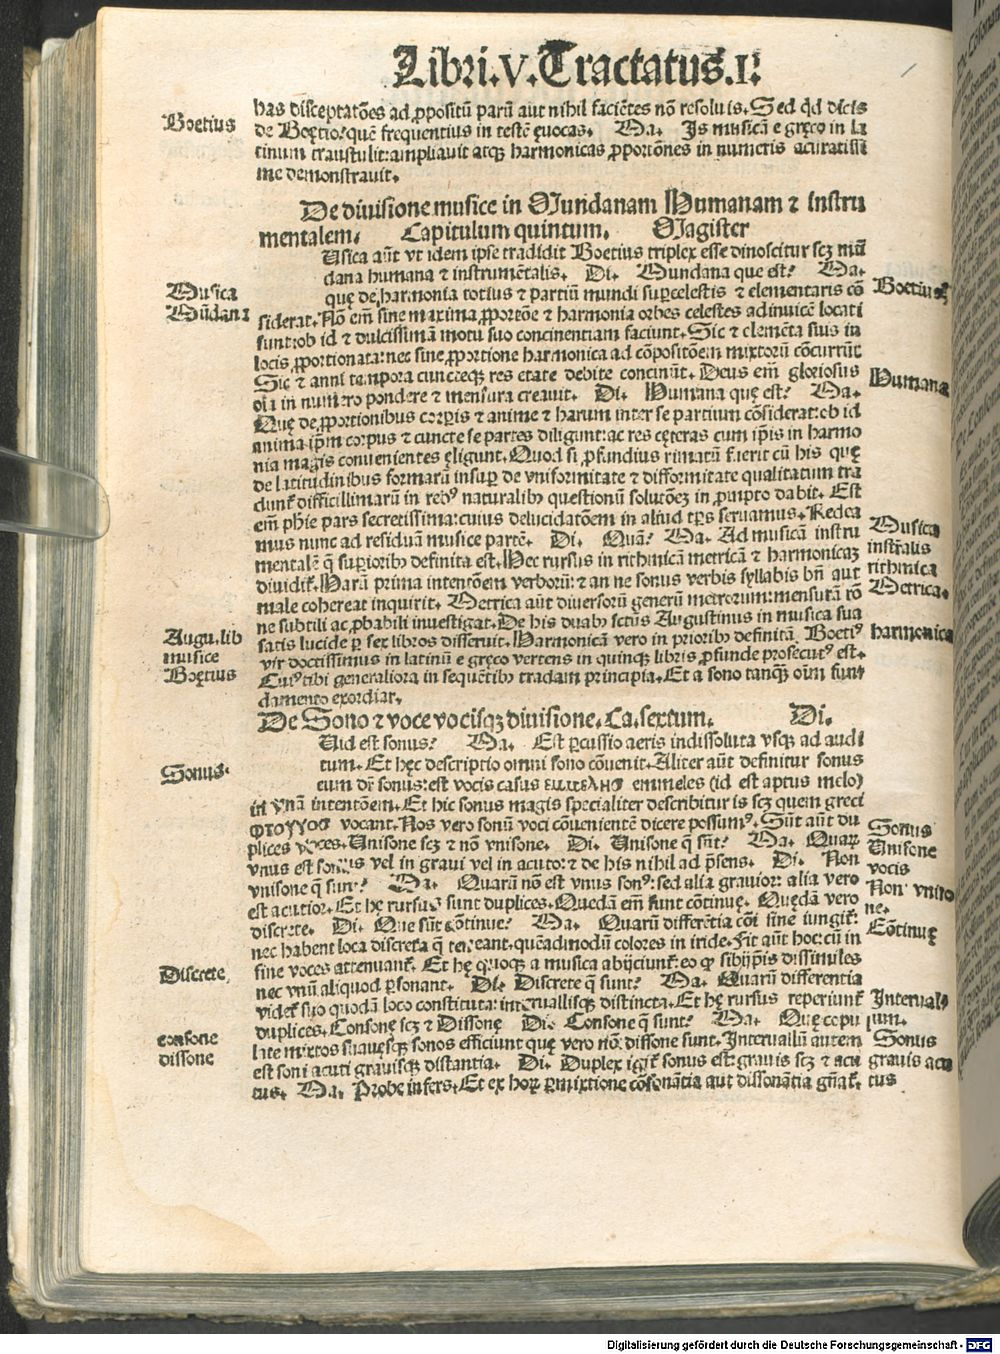 Libri.V.Tractatus.I.
has disceptatōes ad ꝓpositū parū aut nihil faciētes nō resoluis. Sed qd dicis
Boetius
de Boętio? quē frequentius in testē ęuocas. Ma. Is musicā e gręco in la
tinum transtulit: ampliauit atqꝫ harmonicas ꝓportōnes in numeris acuratissi
me demonstrauit.
De diuisione musice in Mundanam Humanam ⁊ instru
mentalem. Capitulum quintum. Magister
Usica aūt vt idem ipse tradidit Boetius triplex esse dinoscitur scꝫ mū
dana humana ⁊ instrumētalis. Di. Mundana que est? Ma.
Musica
Mūdana
Boetius
quę de harmonia totius ⁊ partiū mundi suꝑcelestis ⁊ elementaris cō
siderat. Nō em̄ sine maxima ꝓportōe ⁊ harmonia orbes celestes adinuicē locati
sunt: ob id ⁊ dulcissimā motu suo concinentiam faciunt. Sic ⁊ elemēta suis in
locis ꝓportionata: nec sine ꝓportione harmonica ad cōpositōem mixtorū cōcurrūt
Sic ⁊ anni tempora cunctęqꝫ res etate debite concinūt. Deus em̄ gloriosus
oīa in numero pondere ⁊ mensura creauit. Di. Humana quę est? Ma.
Humana
Quę de ꝓportionibus corꝑis ⁊ anime ⁊ harum inter se partium cōsiderat: ob id
anima ip̄m corpus ⁊ cuncte se partes diligunt: ac res cęteras cum ip̄is in harmo
nia magis conuenientes ęligunt. Quod si ꝓfundius rimatū fuerit cū his quę
de latitudinibus formarū insuꝑ de vniformitate ⁊ difformitate qualitatum tra
dunt᷑ difficillimarū in rebꝰ naturalibꝰ questionū solutōeꝫ in ꝓmpto dabit. Est
em̄ phie pars secretissima: cuius delucidatōem in aliud tꝑs seruamus. Redea
mus nunc ad residuā musice partē. Di. Quā? Ma. Ad musicā instru
Musica
instrālis
mentalē q̄ superioribꝰ definita est. Hec rursus in rithmicā metricā ⁊ harmonicaꝫ
rithmica
diuidit᷑. Harū prima intentōem verborū: ⁊ an ne sonus verbis syllabis bn̄ aut
Metrica.
male cohereat inquirit. Metrica aūt diuersorū generū metrorum: mensurā rō
ne subtili ac ꝓbabili inuestigat. De his duabꝰ sctūs Augustinus in musica sua
Augu. lib
musice
Boętius
harmonica
satis lucide ꝑ sex libros disseruit. Harmonicā vero in prioribꝰ definitā Boetiꝰ
vir doctissimus in latinū e gręco vertens in quinqꝫ libris ꝓfunde prosecutꝰ est.
Cuiꝰ tibi generaliora in sequētibꝰ tradam principia. Et a sono tanqꝫ oīm fun
damento exordiar.
De Sono ⁊ voce vocisqꝫ diuisione. Ca. sextum. Di.
Uid est sonus? Ma. Est ꝑcussio aeris indissoluta vsqꝫ ad audi
tum. Et hęc descriptio omni sono cōuenit. Aliter aūt definitur sonus
Sonus.
cum dr̄ sonus: est vocis casus emmeles (id est aptus melo)
in vnā intentōem. Et hic sonus magis specialiter describitur is scꝫ quem greci
ΦΤΟΥΓΟΣ vocant. Nos vero sonū voci cōuenientē dicere possumꝰ. Sūt aūt du
Sonus
plices voces. Unisone scꝫ ⁊ nō vnisone. Di. Unisone q̄ sūt? Ma. Quaꝝ
Unisone
vocis
vnus est sonus vel in graui vel in acuto: ⁊ de his nihil ad p̄sens. Di. Non
vnisone q̄ sunt? Ma. Quarū nō est vnus sonꝰ: sed alia grauior: alia vero
Non vniso
ne.
est acutior. Et hę rursus sunt duplices. Quędā em̄ sunt cōtinuę. Quędā vero
discrete. Di. Que sūt cōtinue? Ma. Quarū differētia cōi sine iungit᷑:
Cōtinuę
nec habent loca discreta q̄ teneant. quēadmodū colores in iride. Fit aūt hoc: cū in
sine voces attenuant᷑. Et hę quoqꝫ a musica abijciunt᷑: eo ꝙ sibijp̄is dissimiles
Discrete
nec vnū aliquod ꝑsonant. Di. Discrete q̄ sunt? Ma. Quarū differentia
videt᷑ suo quodā loco constituta: interuallisqꝫ distincta. Et hę rursus reperiunt᷑
Interual
lum.
duplices. Consonę scꝫ ⁊ Dissonę Di. Consone q̄ sunt? Ma. Quę copu
consone
dissone
Sonus
grauis acu
tus
late mixtos suauesqꝫ sonos efficiunt quę vero nō: dissone sunt. Interuallū autem
est soni acuti grauisqꝫ distantia. Di. Duplex igit᷑ sonus est: grauis scꝫ ⁊ acu
tus. Ma. Probe infers. Et ex hoꝝ ꝑmixtione cōsonātia aut dissonātia gn̄at᷑.
Digitalisierung gefördert durch die Deutsche Forschungsgemeinschaft - DFG